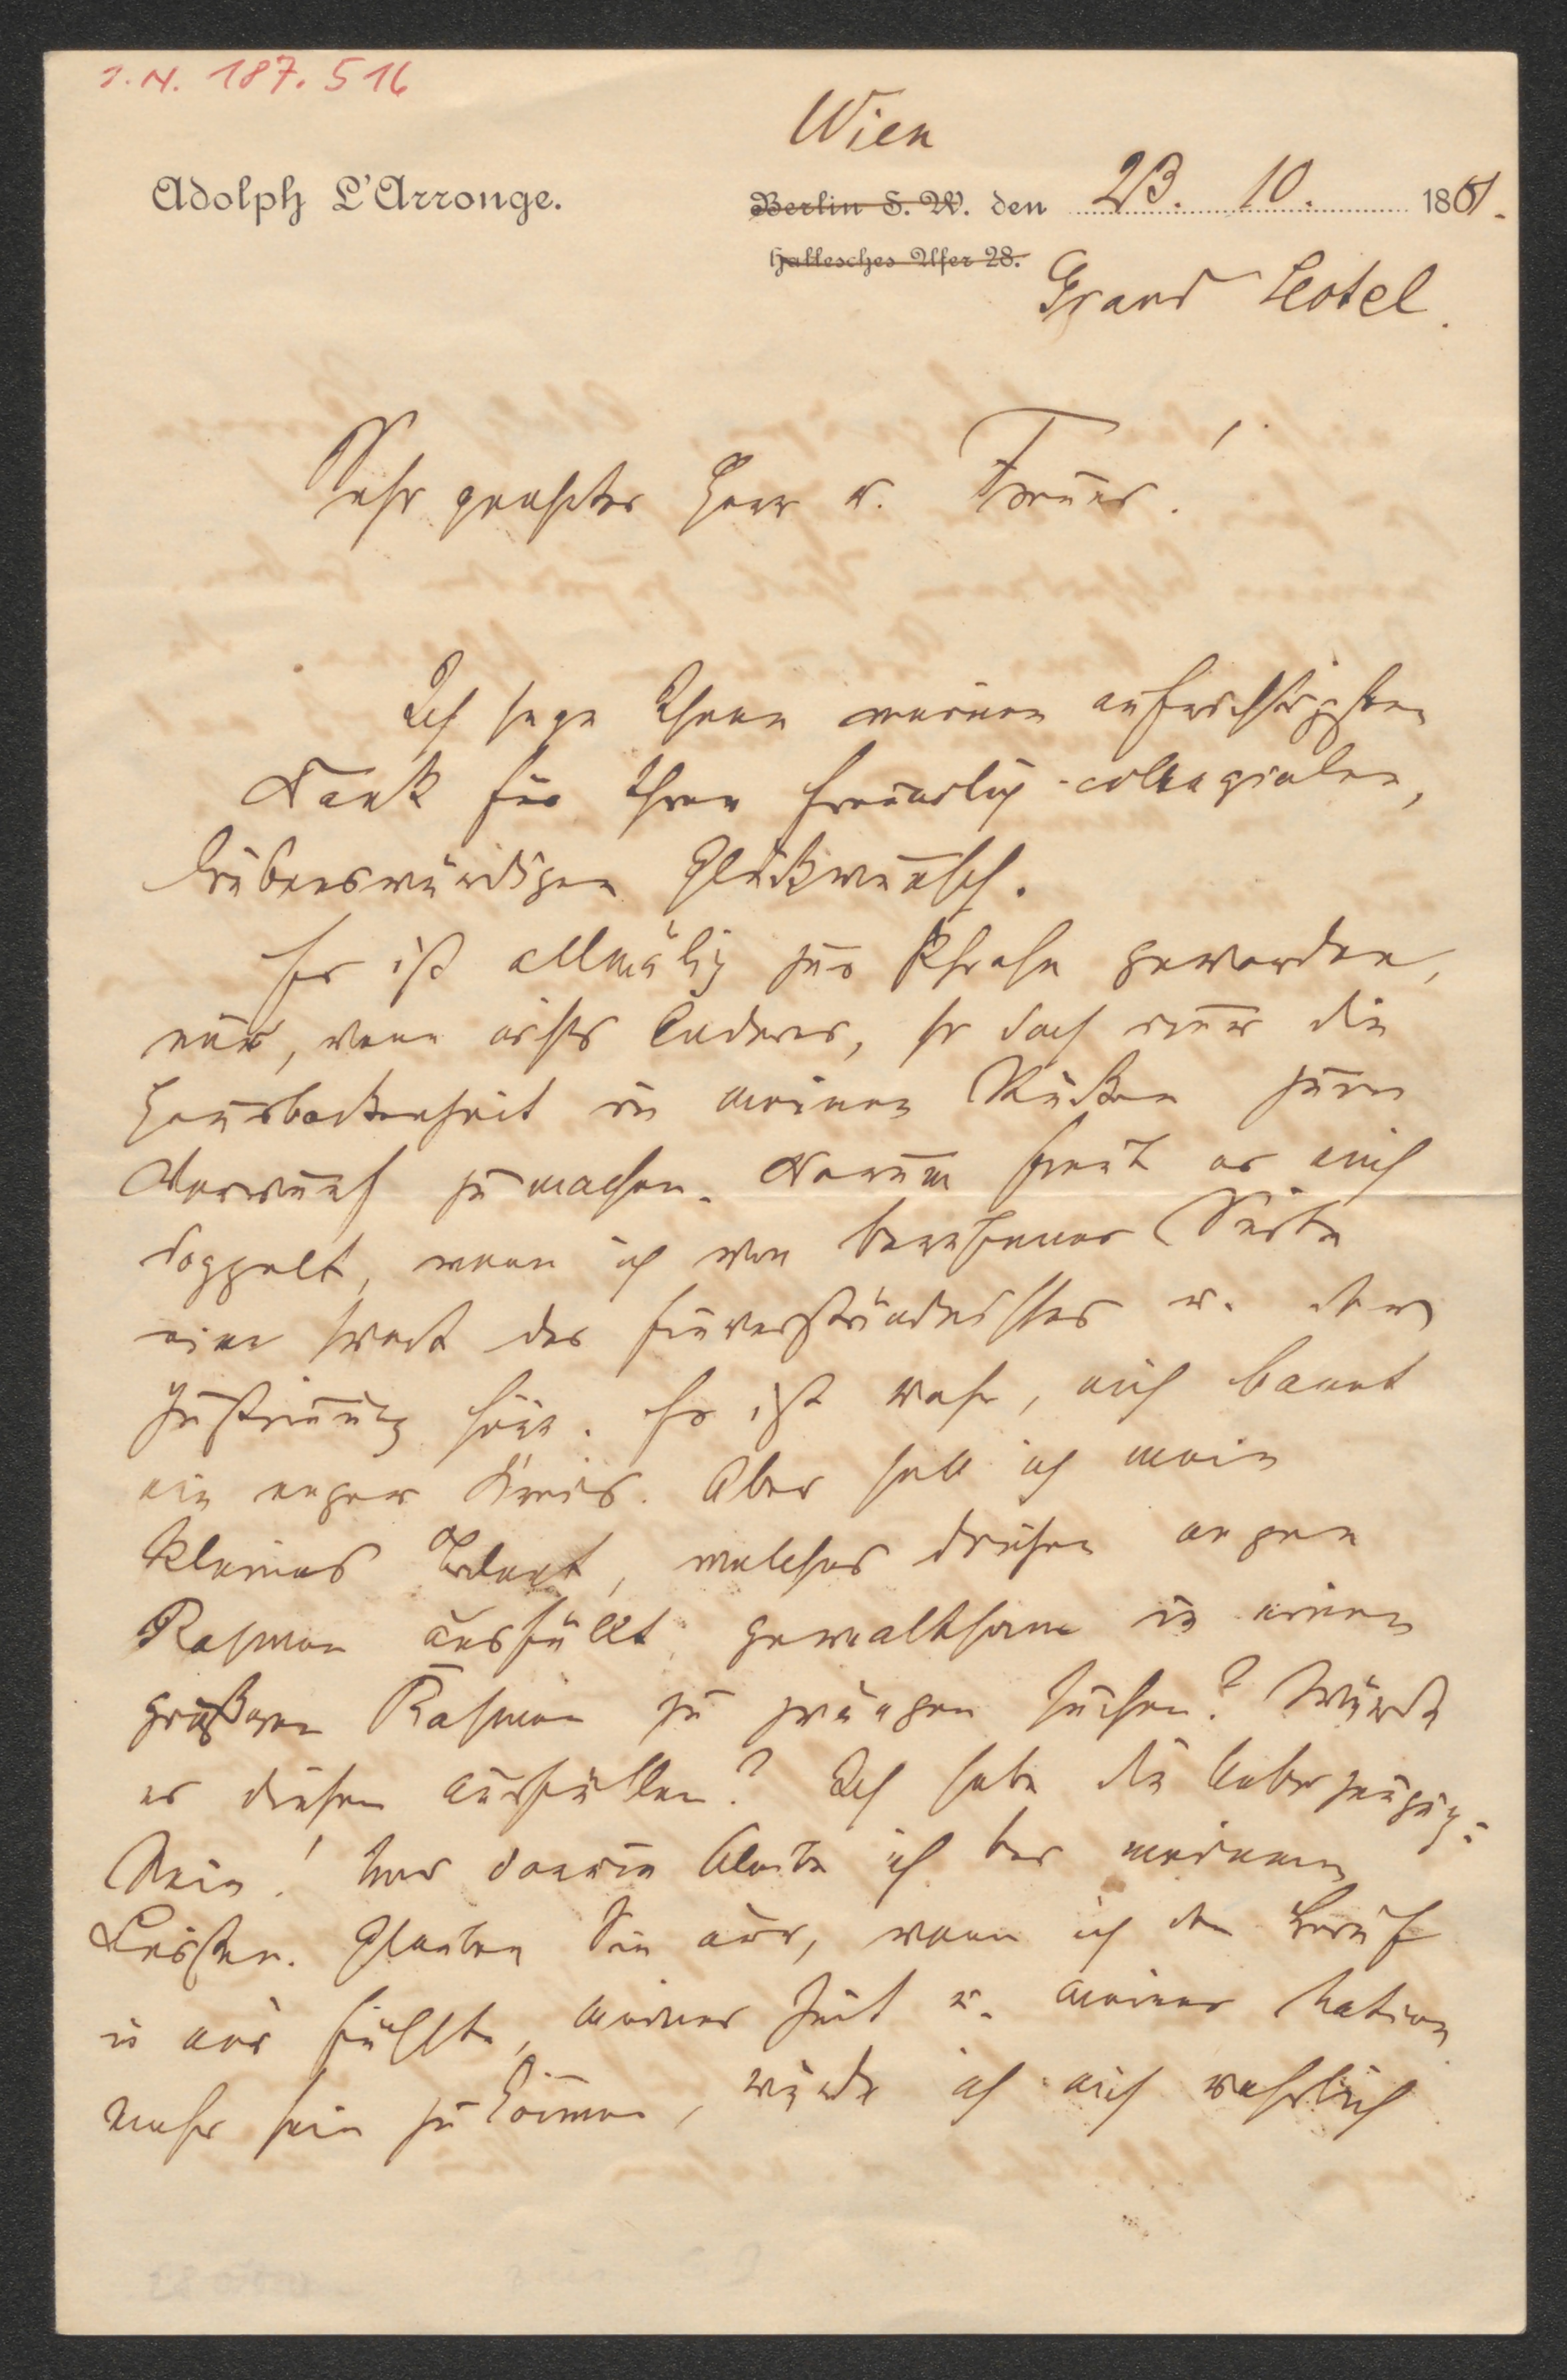 I. N. 187.516
Wien
Adolph L'Arronge.
Berlin S. W. den 23. 10. 1881.
Hallesches Ufer 28.
Grand Hotel.
Sehr geehrter Herr v.
Ich sage Ihnen meinen aufrichtigsten
Dank für Ihren freundlich-collegialen,
liebenswürdigen Glückwunsch.
Es ist allmälig zur Phrase geworden,
mir, wenn nichts Anderes, so doch immer die
Hausbackenheit in meinen Stücken zum
Vorwurf zu machen. Darum freut es mich
doppelt, wenn ich von berufener Seite
ein Wort des Einverständnisses u. der
Zustimmung höre. Es ist wahr, mich bannt
ein enger Kreis. Aber soll ich mein
kleines Talent, welches diesen engen
Rahmen ausfüllt, gewaltsam in einen
größeren Rahmen zu zwängen suchen? Würde
es diesen ausfüllen? Ich habe die Ueberzeugung:
Nein! Und darum bleibe ich bei meinem
Leisten. Glauben Sie mir, wenn ich den Beruf
in mir fühlte, meiner Zeit u. meiner Nation
mehr sein zu können, würde ich mich wahrlich